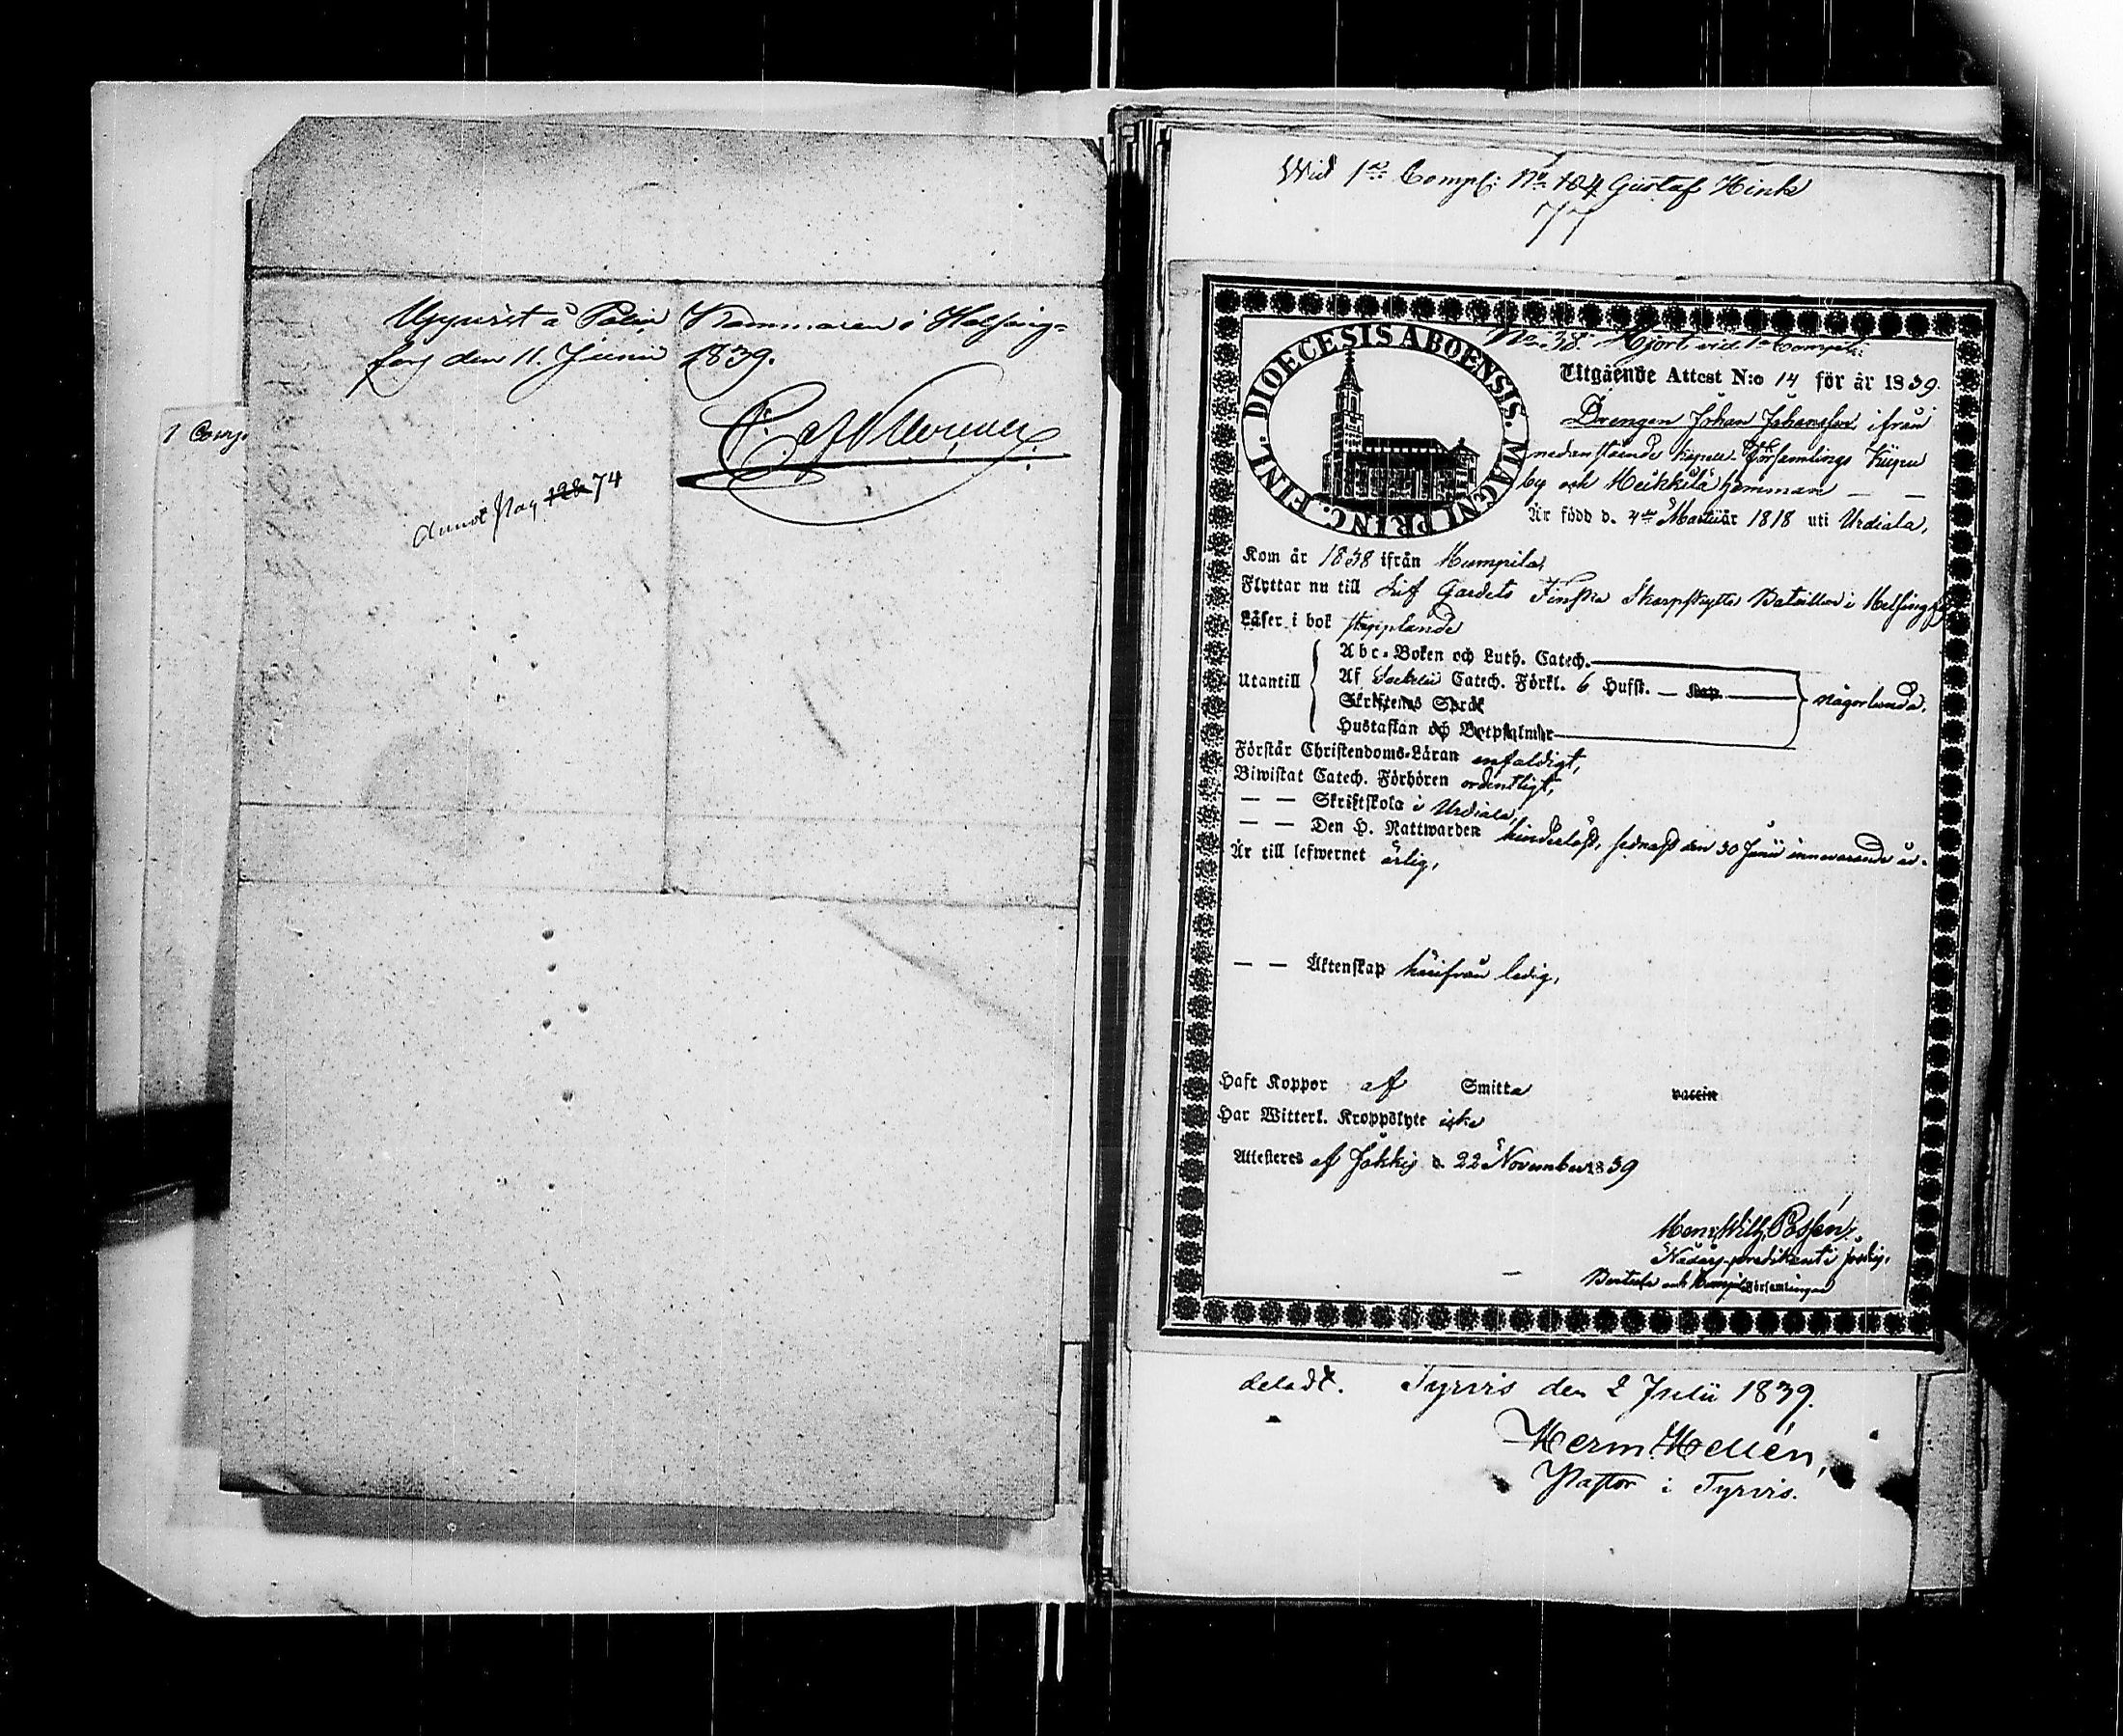 Uppvist å Polis Kammaren i Helsing=
fors den 11. Junii 1839.
Annot Pag 128 74
1 Comp.
Wid 1sta Comp: No 104 Gustaf Hink
77
DIOECESIS ABOENSIS. MAGNI PRINC. FINL.
No 38 Hjort vid 1a Comp:
Utgående Attest N:o 14 för år 1839.
Drengen Johan Johansson ifrån
nedanstående Capell-Församlings Kiipu
by och Heikkilä hemman — —
Är född d. 4de Martii år 1818 uti Urdiala,
Kom år 1838 ifrån Humpila,
Flyttar nu till Lif Gardets Finska Skarpskytte Bataillon i Helsingfors
Läser i bok
Utantill
Abc-Boken och Luth. Catech.
Af Catech. Förkl. 6 Hufst. — Kap.
Skriftenes Språk
Hustaflan och Botpsalmer
någorlunda.
Förstår Christendoms-Läran enfaldigt,
Biwistat Catech. Förhören ordentligt,
— — Skriftskola i Urdiala,
— — Den H. Nattwarden sednast den 30 Junii innevarande år.
Är till lefwernet ärlig,
— — Äktenskap härifrån ledig,
Haft Koppor af Smitta vaccin
Har Witterl. Kroppslyte icke
Attesteres af Jokkis d. 22 November 1839
Henr. Wilh.
Nådårs-predikant i
och Humpila Församlingar
deladt. Tyrvis den 2 Julii 1839.
Herm. Hellén,
Pastor i Tyrvis.